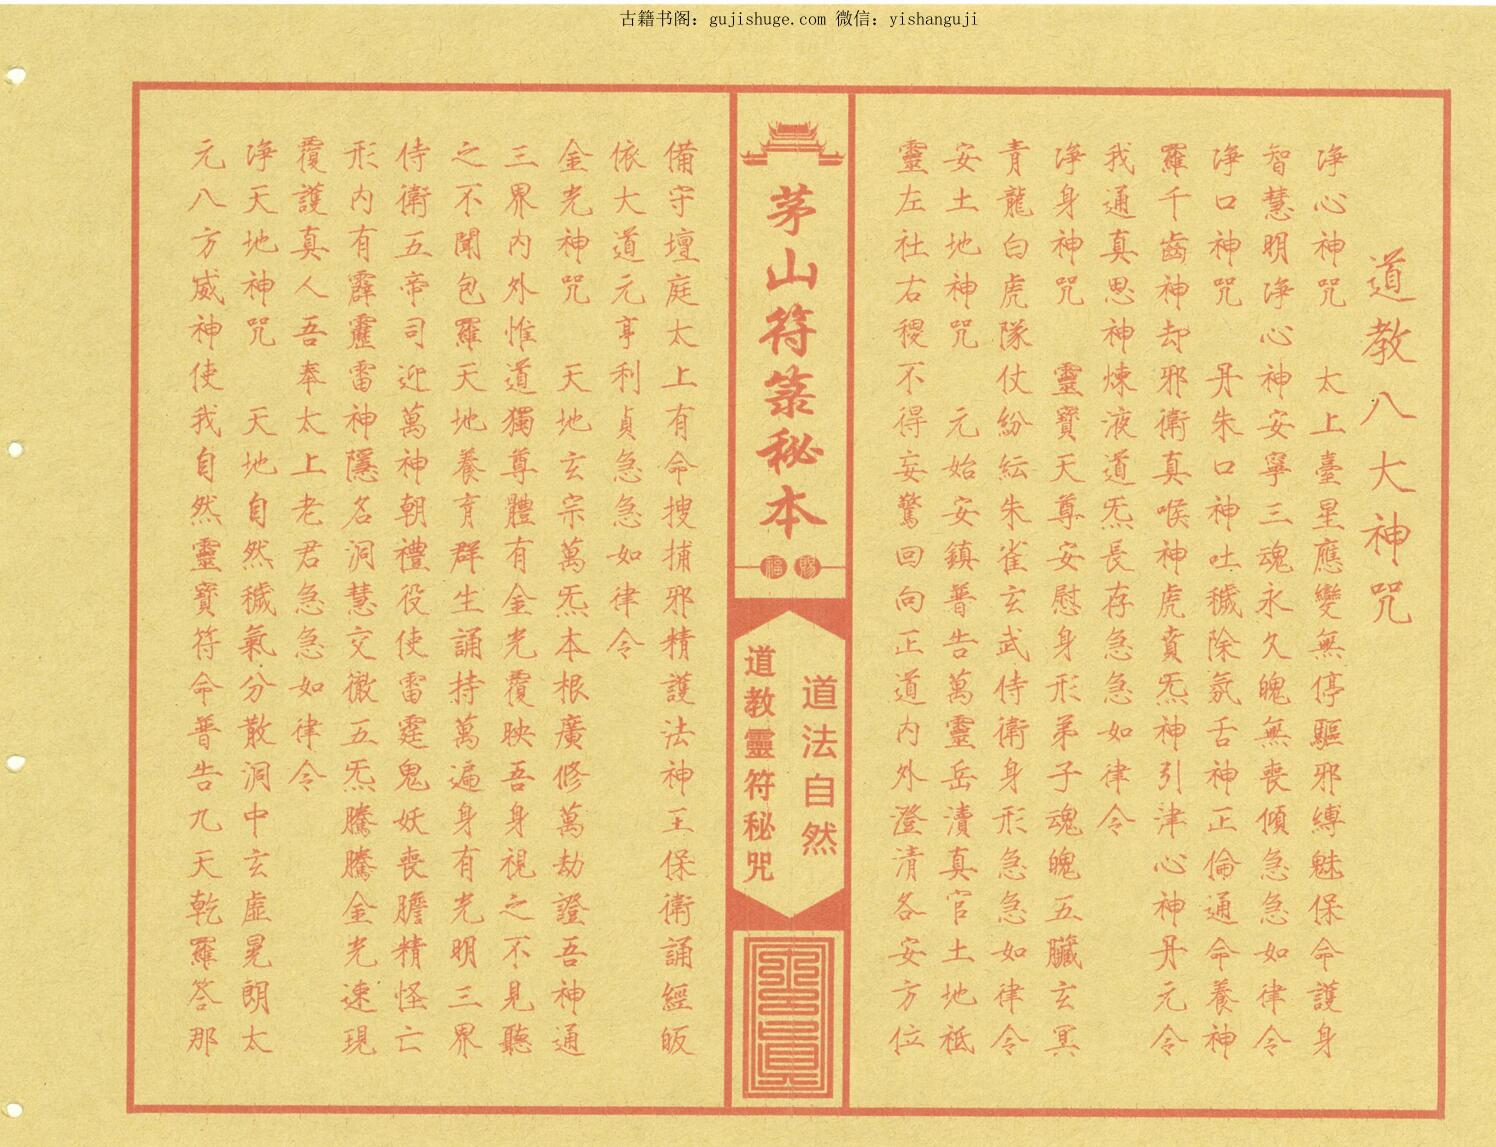 古籍书阁：gujishuge.com 微信：yishanguji
道教八大神咒
净心神咒　太上臺星應變無停驅邪縛魅保命護身
智慧明净心神安寧三魂永久魄無喪傾急急如律令
净口神咒　丹朱口神吐穢除氛舌神正倫通命養神
羅千齒神却邪衛真喉神虎賁炁神引津心神丹元令
我通真思神煉液道炁長存急急如律令
净身神咒　靈寶天尊安慰身形弟子魂魄五臟玄冥
青龍白虎隊仗紛紜朱雀玄武侍衛身形急急如律令
安土地神咒　元始安鎮普告萬靈岳瀆真官土地祗
靈左社右稷不得妄驚回向正道内外澄清各安方位
茅山符箓秘本
賜福
道法自然
道教靈符秘咒
備守壇庭太上有命搜捕邪精護法神王保衛誦經皈
依大道元亨利貞急急如律令
金光神咒　天地玄宗萬炁本根廣修萬劫證吾神通
三界内外惟道獨尊體有金光覆映吾身視之不見聽
之不聞包羅天地養育群生誦持萬遍身有光明三界
侍衛五帝司迎萬神朝禮役使雷霆鬼妖喪膽精怪亡
形内有霹靂雷神隱名洞慧交徹五炁騰騰金光速現
覆護真人吾奉太上老君急急如律令
净天地神咒　天地自然穢氣分散洞中玄虛晃朗太
元八方威神使我自然靈寶符命普告九天乾羅答那